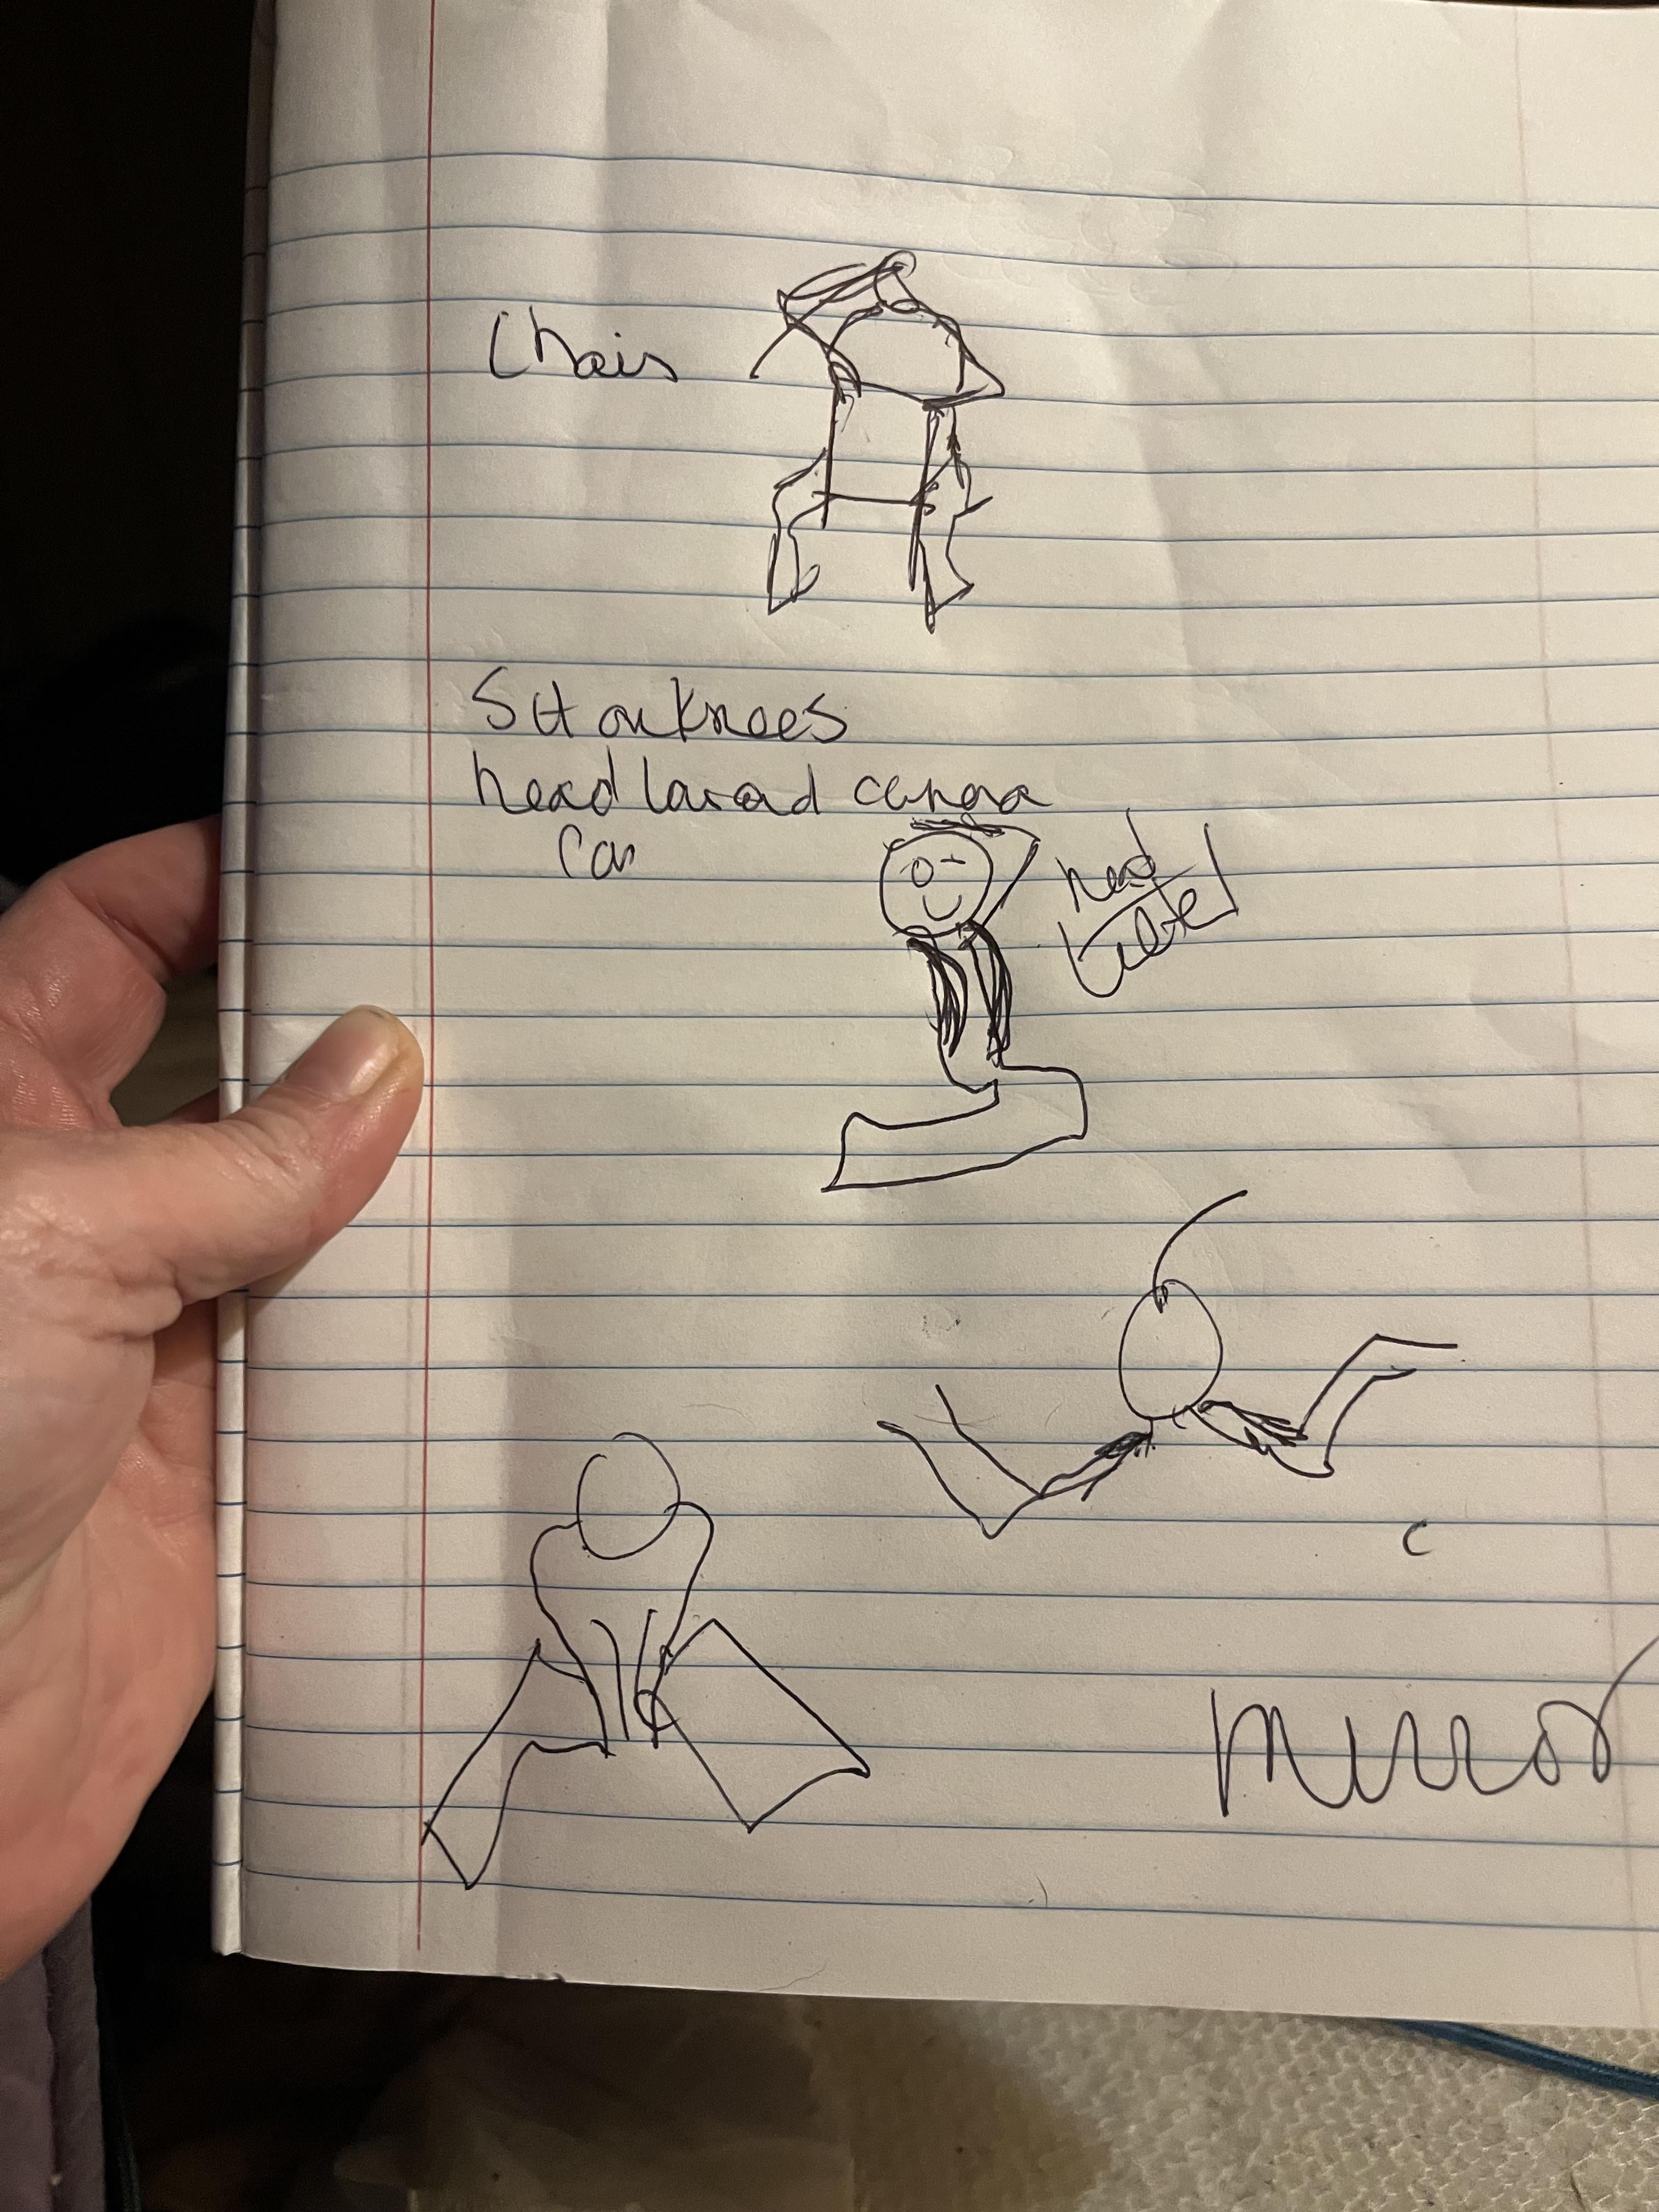 Chair
Sit on knees
head toward camera
head
tilted
mirror